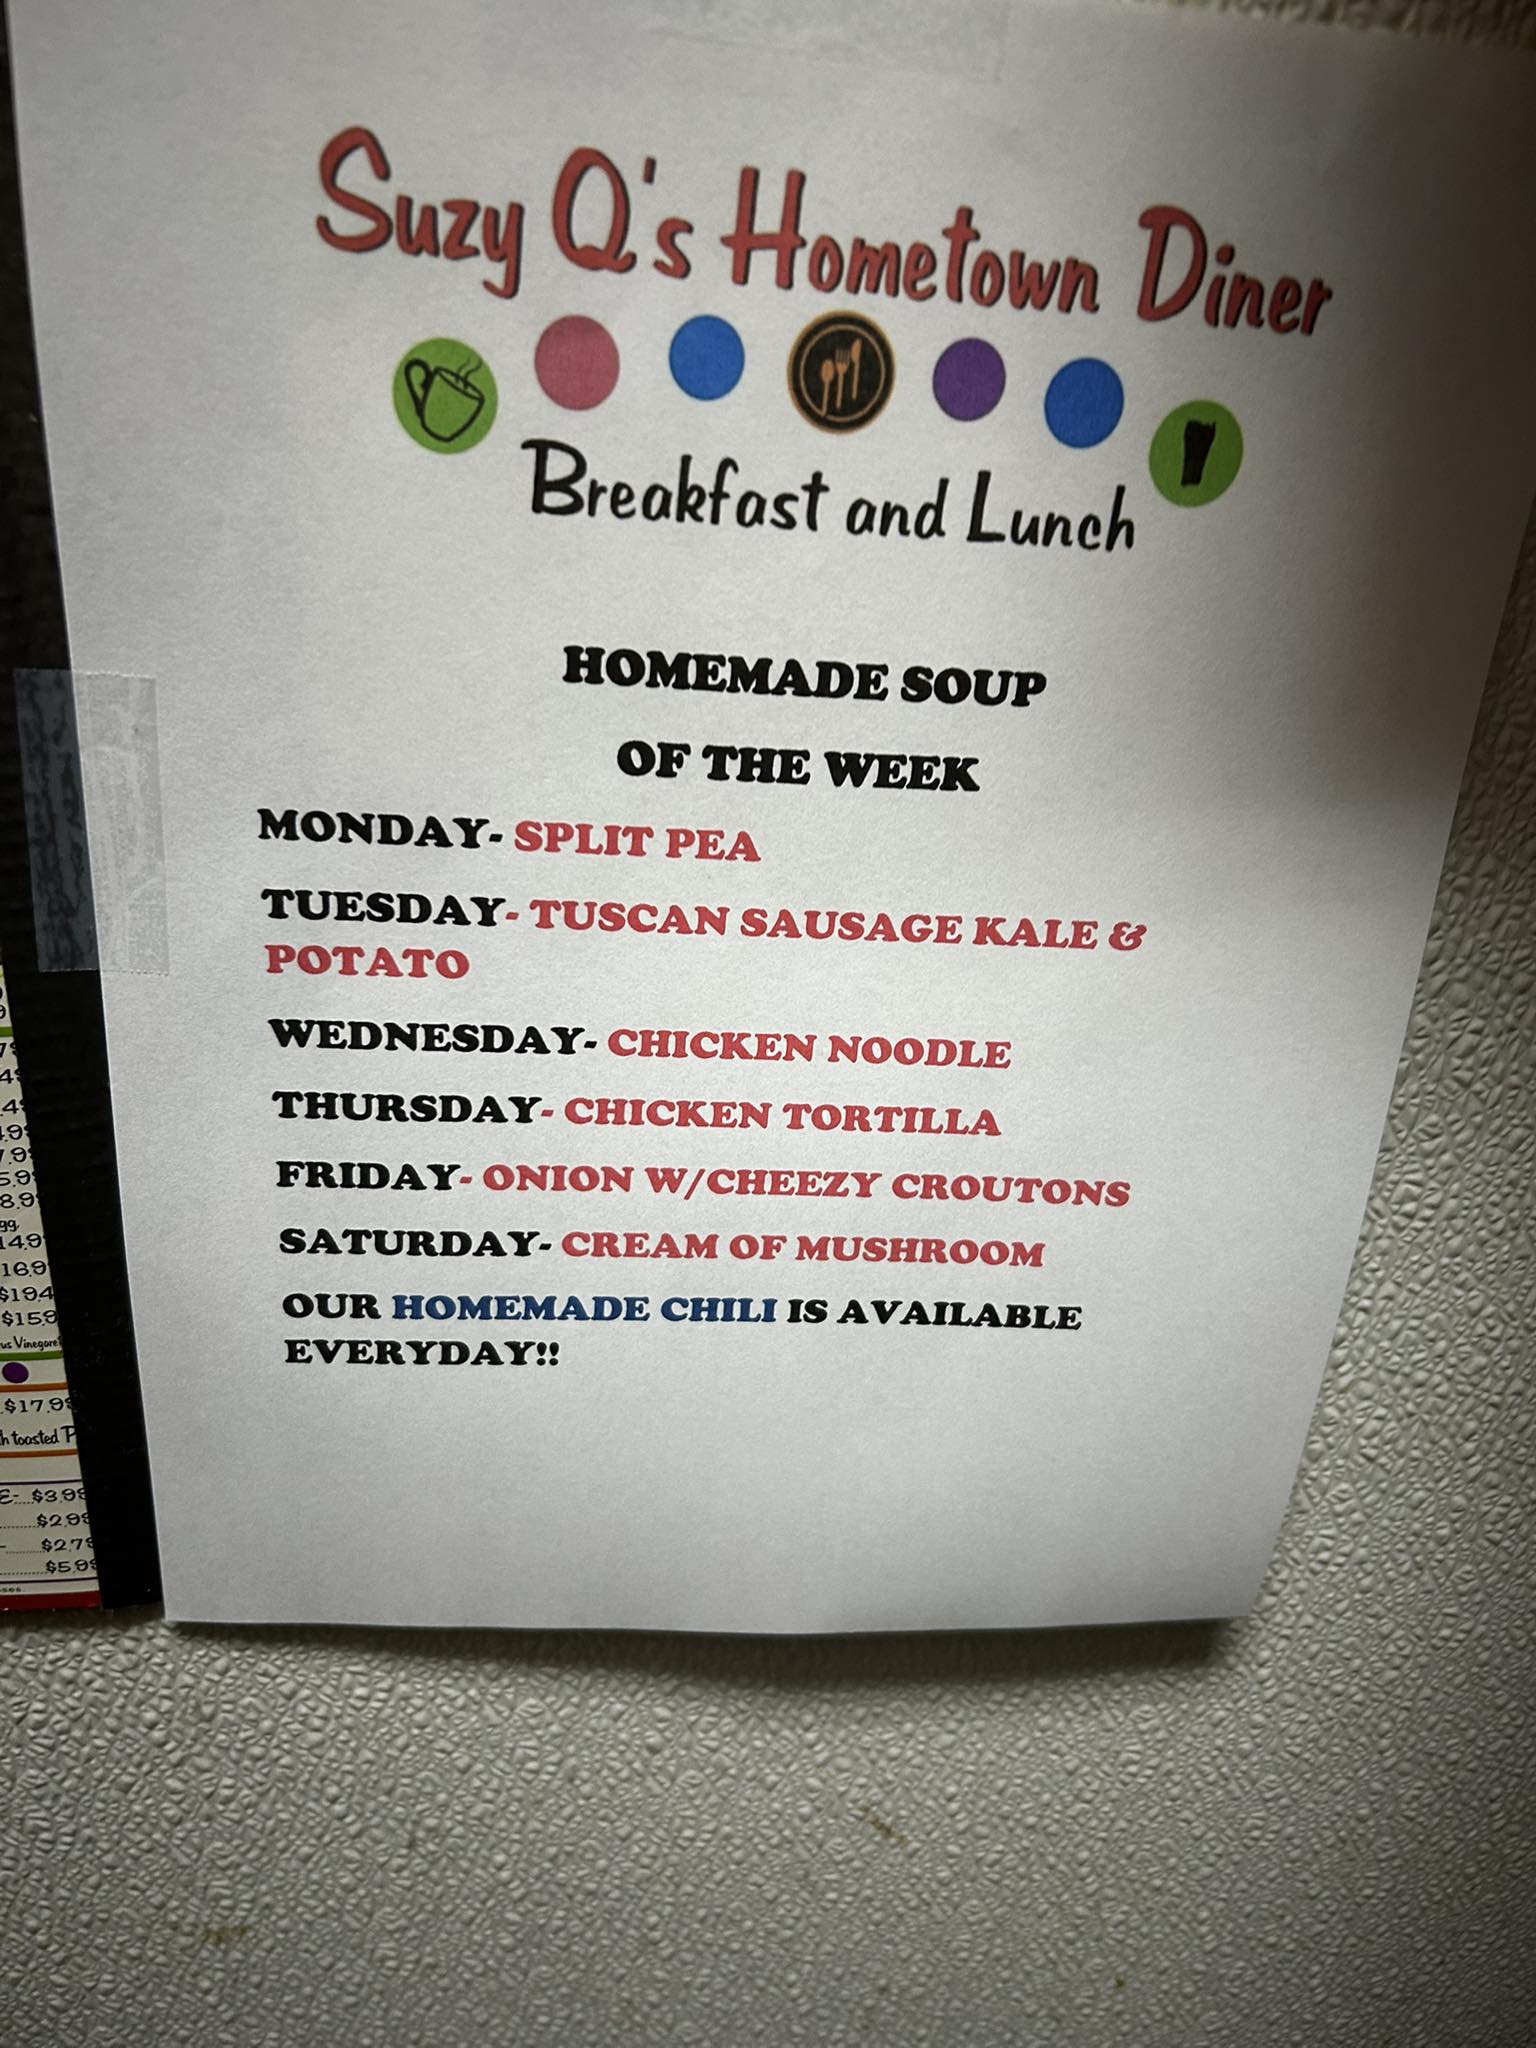 Suzy Q's Hometown Diner
Breakfast and Lunch
HOMEMADE SOUP
OF THE WEEK
MONDAY- SPLIT PEA
TUESDAY- TUSCAN SAUSAGE KALE &
POTATO
WEDNESDAY- CHICKEN NOODLE
THURSDAY- CHICKEN TORTILLA
FRIDAY- ONION W/CHEEZY CROUTONS
SATURDAY- CREAM OF MUSHROOM
OUR HOMEMADE CHILI IS AVAILABLE
EVERYDAY!!
$17.99
toasted
$3.99
$2.99
$2.79
$5.99